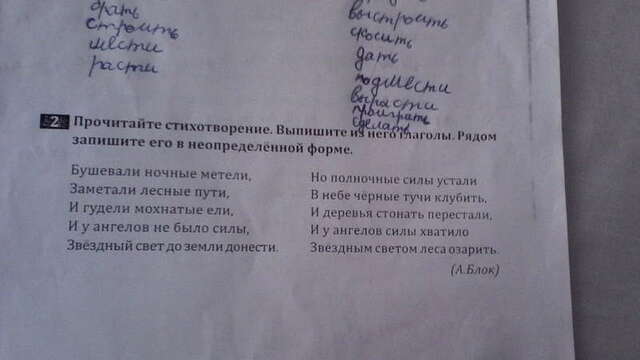 брать
строить
мести
расти
выстроить
скосить
дать
подмести
вырасти
проиграть
сделать
2 Прочитайте стихотворение. Выпишите из него глаголы. Рядом
запишите его в неопределённой форме.
Бушевали ночные метели,
Заметали лесные пути,
И гудели мохнатые ели,
И у ангелов не было силы,
Звёздный свет до земли донести.
Но полночные силы устали
В небе чёрные тучи клубить,
И деревья стонать перестали,
И у ангелов силы хватило
Звёздным светом леса озарить.
(А.Блок)